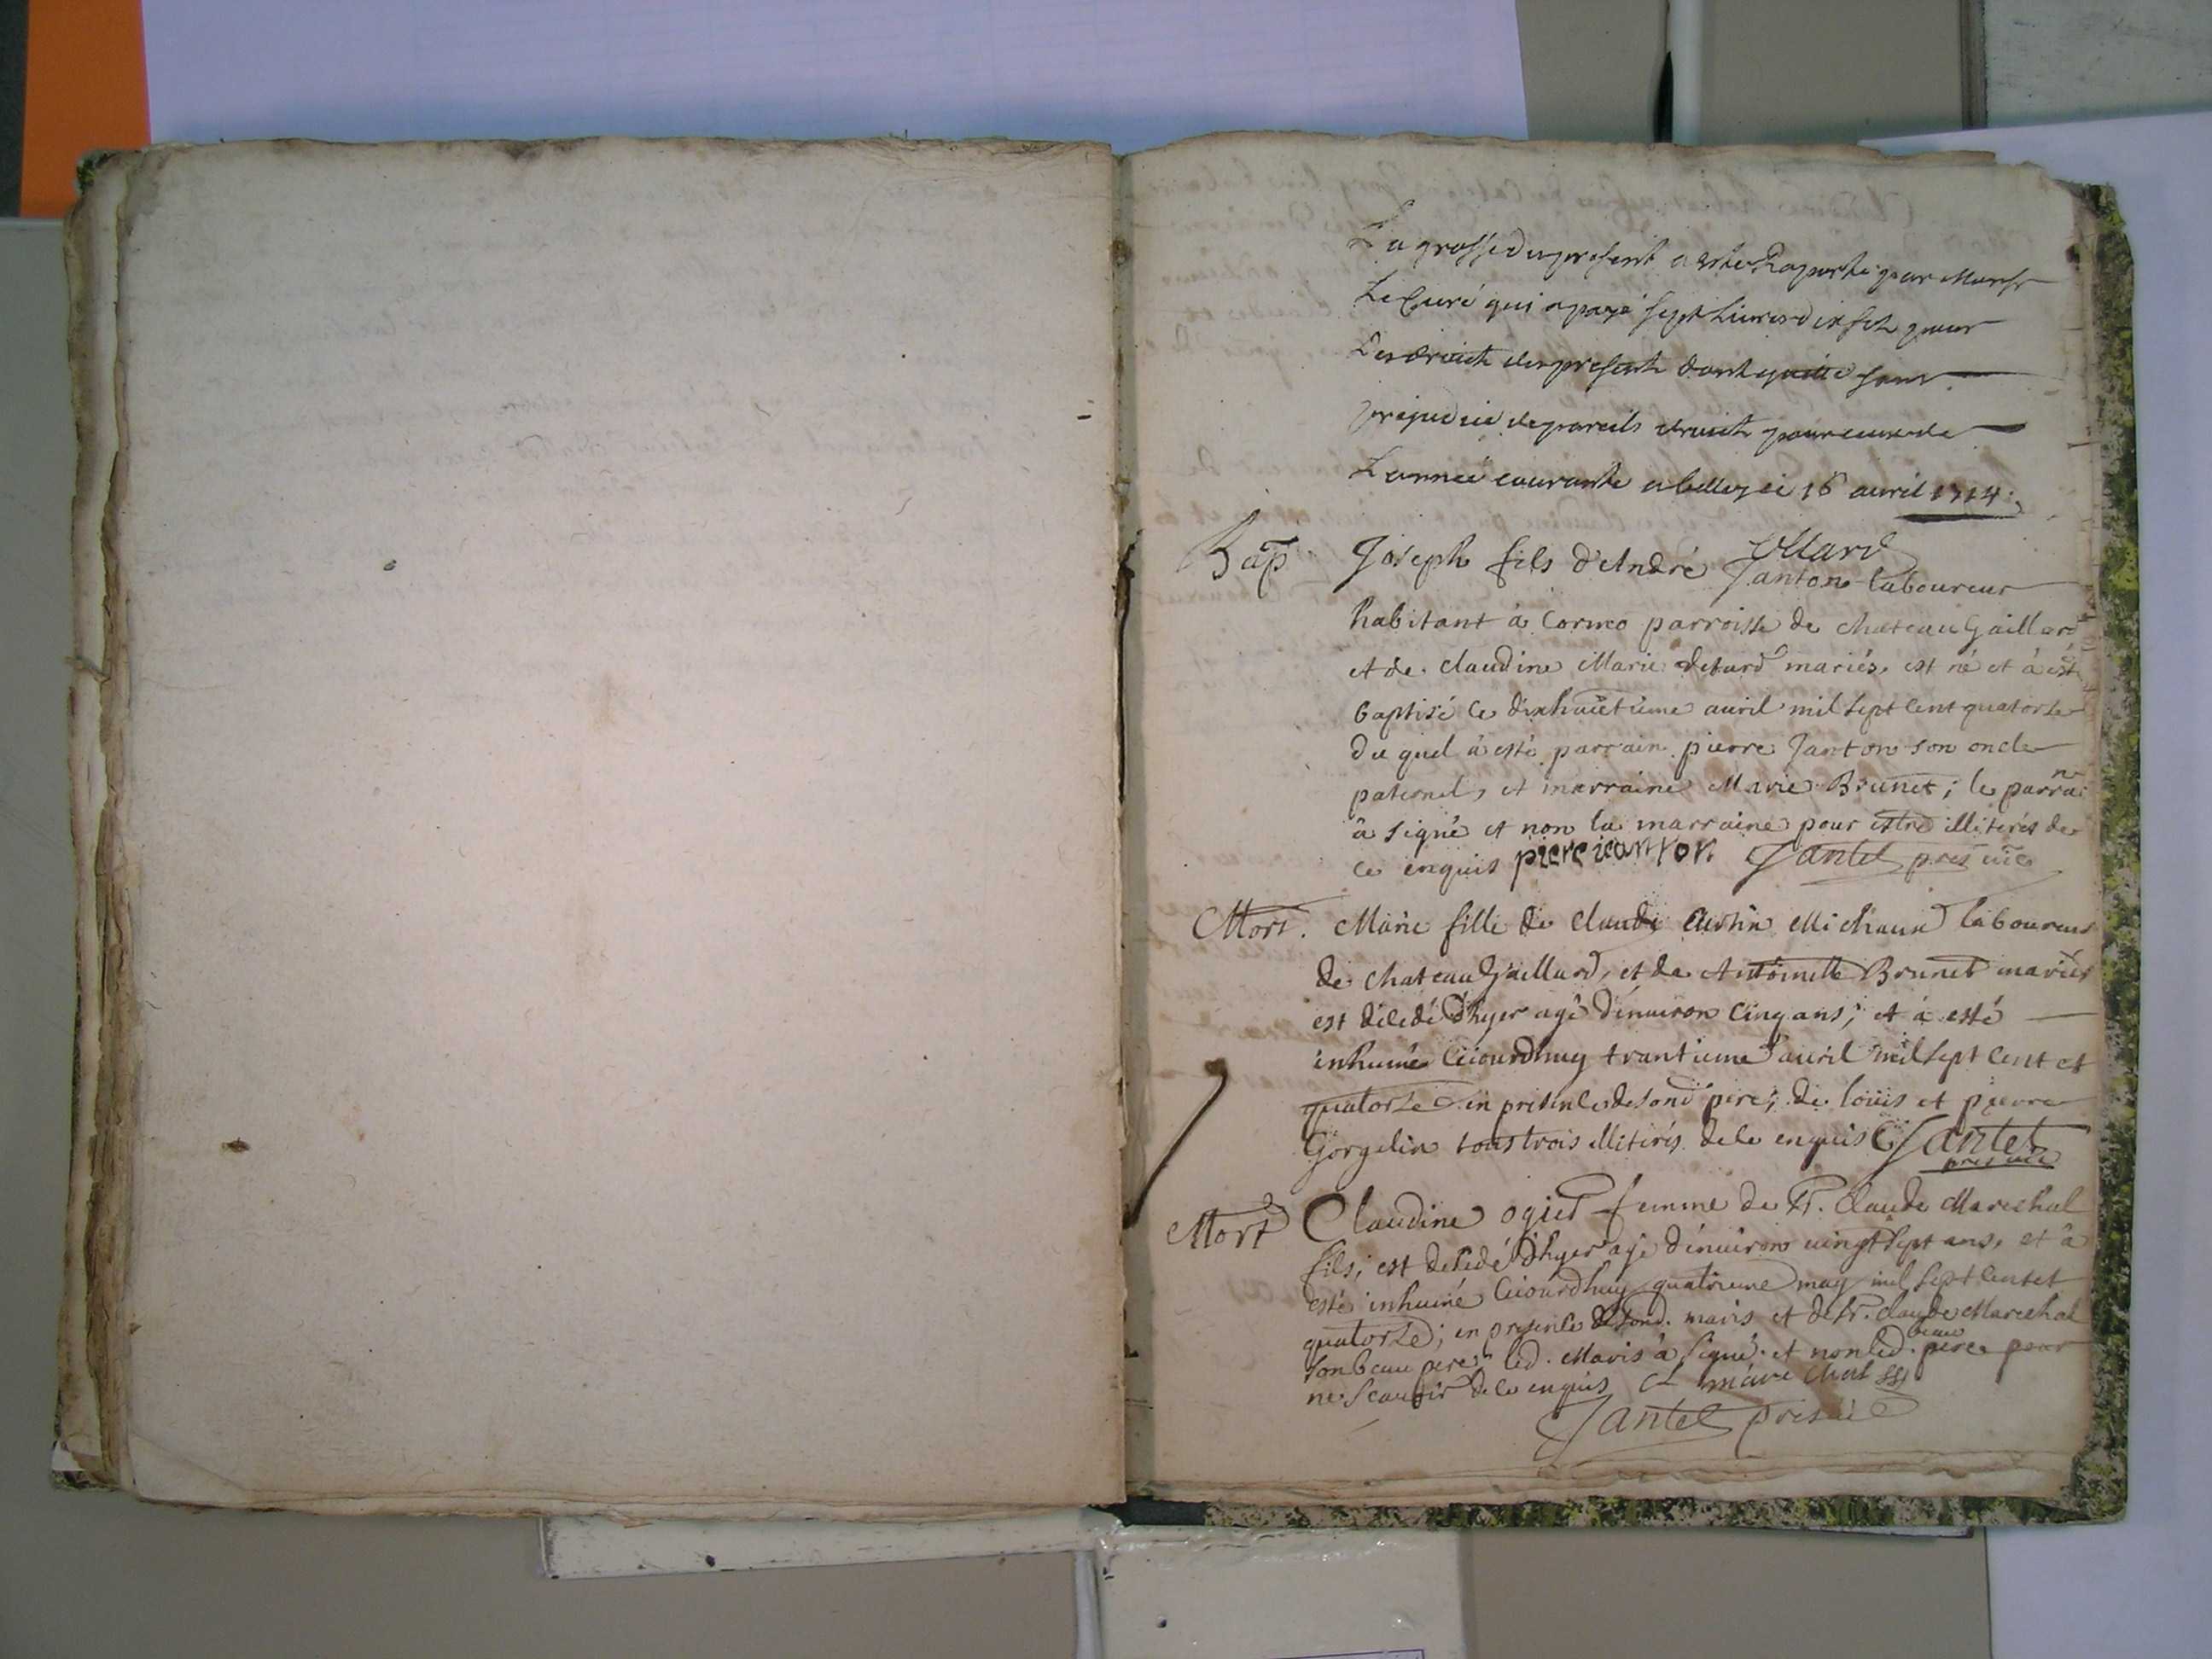 La grosse du present a este Raporté par Monsr
Le Curé qui a payé sept Livres dix sols pour
Les droicts des presents dont quitte sans
prejudice de pareils droicts pour ceux de
L'année courante a belley ce 16 avril 1714.
Bap Joseph fils d'André Janton laboureur
habitant à Cormo parroisse de chateau Gaillard
et de claudine Marie mariés, est né et à esté
baptisé le dixhuictieme auril mil sept cent quatorse
du quel à esté parrain pierre Janton son oncle
paternel, et marraine Marie Brunet; le parrain
à signé et non la marraine pour estre illiterés de
ce enquis piere ieanton Jantet pres vic
Mort. Marie fille de claude Michaud laboureur
de chateau Gaillard, et de Antoinette Brunet mariés
est décedé d'hyer agé d'enuiron cinq ans; et à esté
inhumé ceiourdhuy trantieme auril mil sept cent et
quatorse en presence de sond pere; de loüis et pierre
Gorgelin tous trois illiterés de ce enquis Jantet
pres vic
Mort Claudine ogier femme de Sr. Claude Marechal
fils; est decedé d'hyer agé d'enuiron uingt sept ans, et à
esté inhumé ceiourdhuy quatrieme may mil sept cent et
quatorse; en presence de sond. maris et de Sr. claude Marechal
son beau pere; led. Maris à signé. et non led. beau pere pour
ne scauoir de ce enquis C marechal
Jantet pres vic